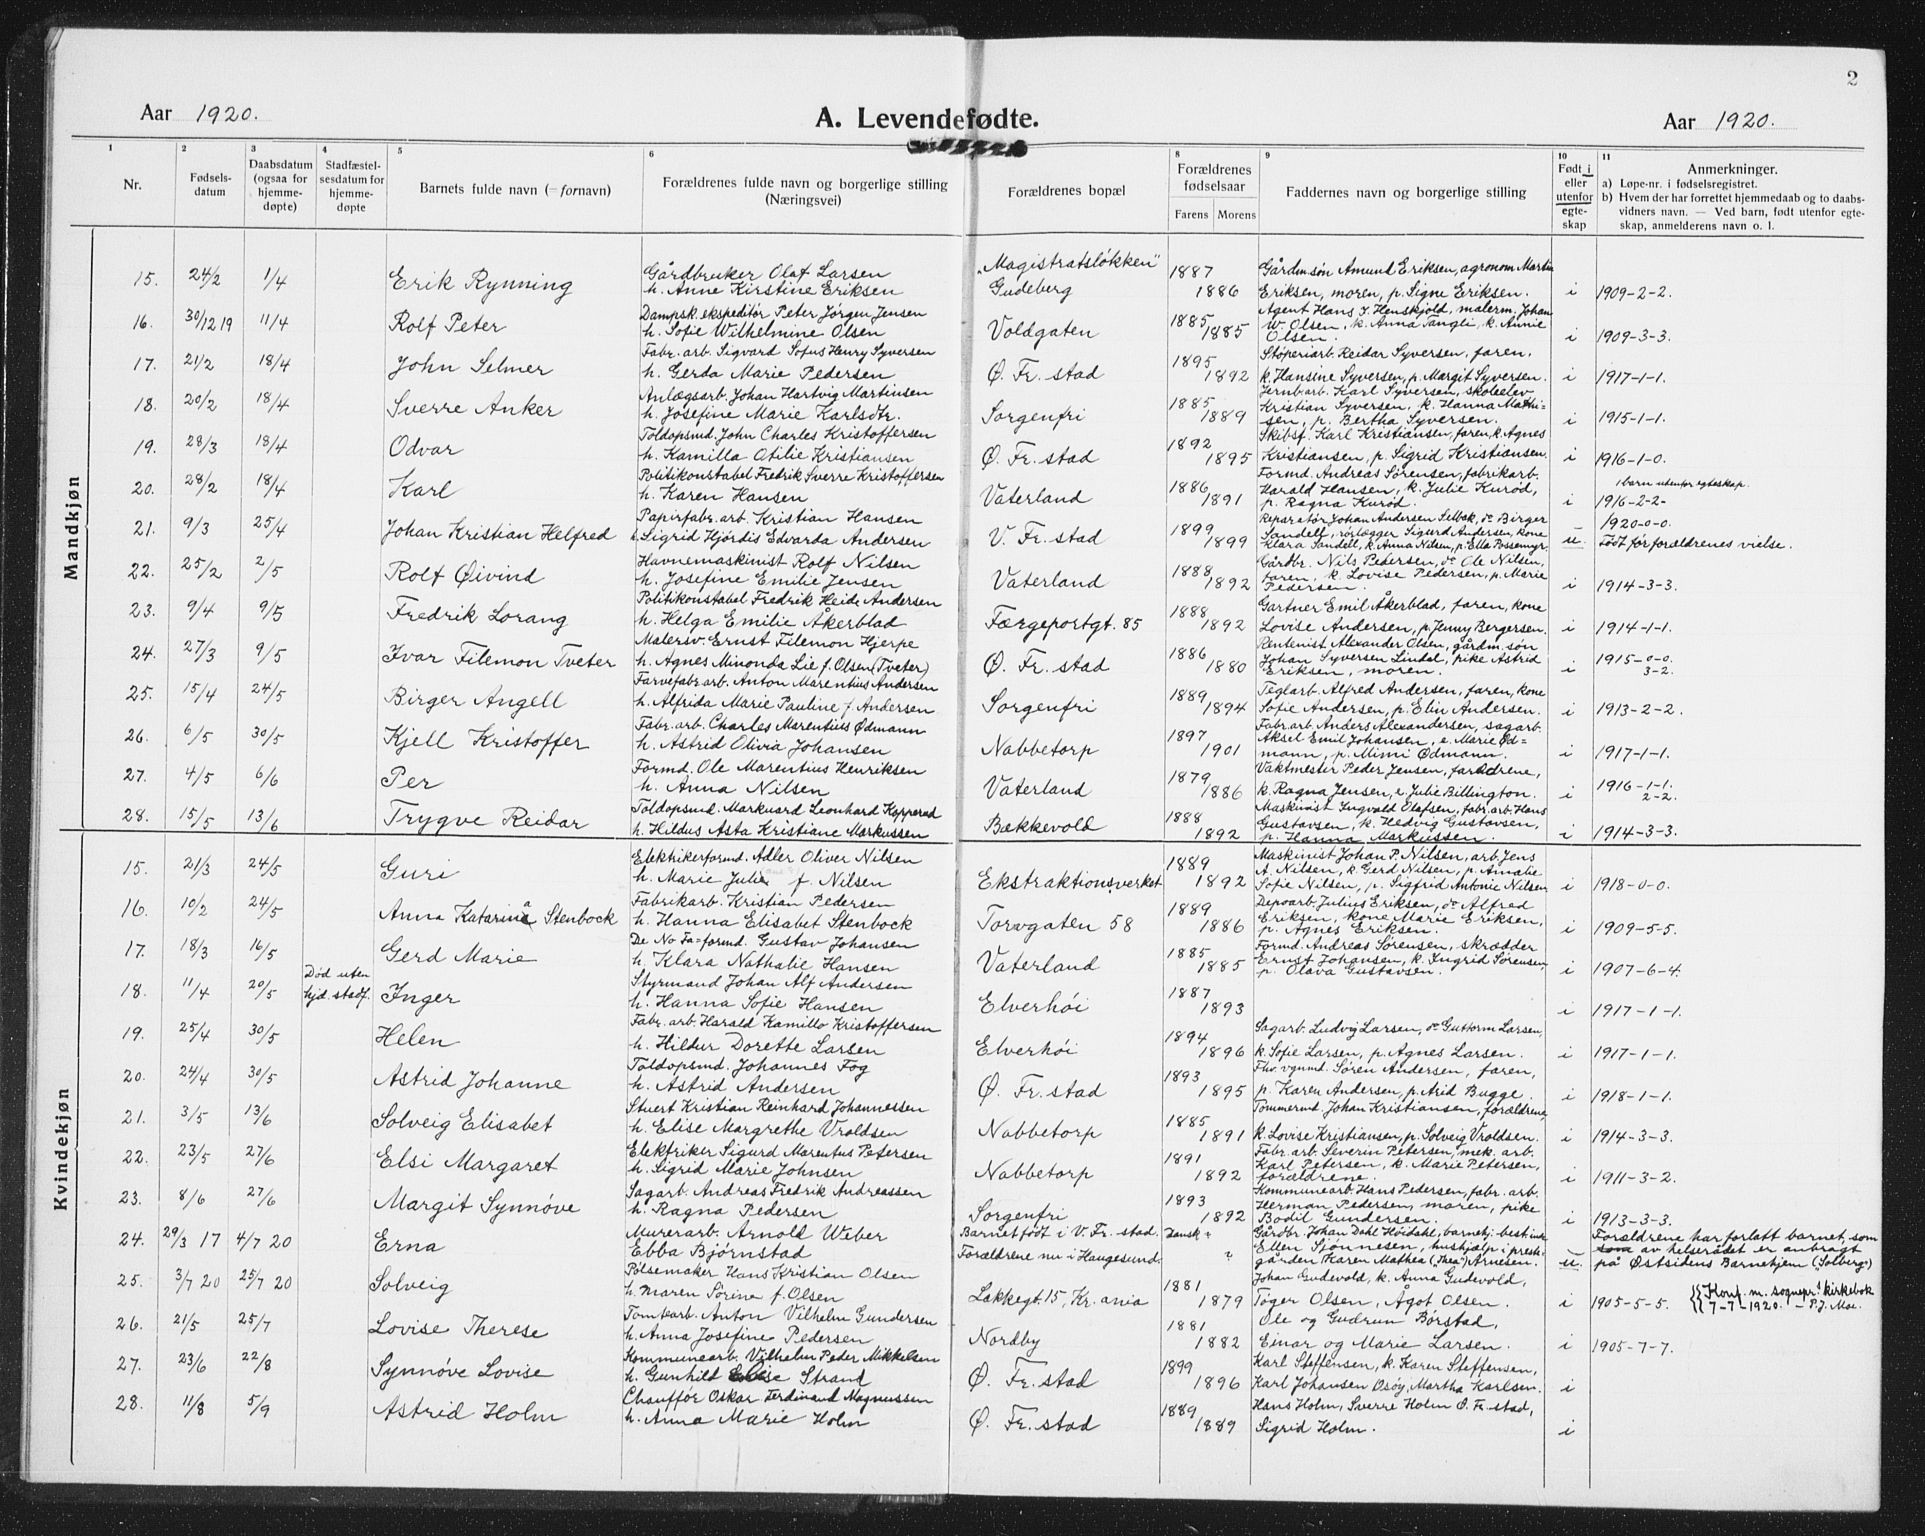 2
Aar 1920.
A. Levendefødte.
Aar 1920.
1 2 3 4 5 6 8 9 10 11
Nr.
Fødsels-
datum
Daabsdatum
(ogsaa for
hjemme-
døpte)
Stadfæstel-
sesdatum for
hjemme-
døpte
Barnets fulde navn (= fornavn)
Forældrenes fulde navn og borgerlige stilling
(Næringsvei)
Forældrenes bopæl
Forældrenes
fødselsaar
Farens Morens
Faddernes navn og borgerlige stilling
Født i
eller
utenfor
egte-
skap
Anmerkninger.
a) Løpe-nr. i fødselsregistret.
b) Hvem der har forrettet hjemmedaab og to daabs-
vidners navn. — Ved barn, født utenfor egte-
skap, anmelderens navn o. l.
Mandkjøn
15. 24/2 1/4 Erik Rynning
Gårdbruker Olaf Larsen
h. Anne Kirstine Eriksen
"Magistratsløkken"
Gudeberg
1887
1886
Gårdm.søn Amund Eriksen, agronom Martin
Eriksen, moren, p. Signe Eriksen.
i 1909-2-2.
16. 30/12 19 11/4 Rolf Peter
Dampsk.ekspeditør Peter Jørgen Jensen
h. Sofie Wilhelmine Olsen
Voldgaten
1885
1885
Agent Hans J. Henskjold, malerm. Johan
W. Olsen, k. Anna Tangli, k. Annie
Olsen.
i 1909-3-3.
17. 21/2 18/4 John Selmer
Fabr. arb. Sigvard Sofus Henry Syversen
h. Gerda Marie Pedersen
Ø. Fr. stad
1895
1892
Støperiarb. Reidar Syversen, faren,
k. Hansine Syversen, p. Margit Syversen.
i 1917-1-1.
18. 20/2 18/4 Sverre Anker
Anlægsarb. Johan Hartvig Martinsen
h. Josefine Marie Karlsdtr.
Sorgenfri
1885
1889
Jernbarb. Karl Syversen, skoleelev
Kristian Syversen, k. Hanna Mathi-
sen, p. Bertha Syversen.
i 1915-1-1.
19. 28/3 18/4 Odvar
Toldopsmd. John Charles Kristoffersen
h. Kamilla Otilie Kristiansen
Ø. Fr. stad
1892
1895
Skibsf. Karl Kristiansen, faren, k. Agnes
Kristiansen, p. Sigrid Kristiansen.
i 1916-1-0.
20. 28/2 18/4 Karl
Politikonstabel Fredrik Sverre Kristoffersen
h. Karen Hansen
Vaterland
1886
1891
Formd. Andreas Sørensen, fabrikarb.
Harald Hansen, k. Julie Kurød,
p. Ragna Kurød.
i 1 barn utenfor egteskap.
1916-2-2-
21. 9/3 25/4 Johan Kristian Helfred
Papirfabr. arb. Kristian Hansen
h. Sigrid Hjørdis Edvarda Andersen
V. Fr. stad
1899
1899
Reparatør Johan Andersen Selbak, do Birger
Sandell, rørlægger Sigurd Andersen, kone
Klara Sandell, k. Anna Nilsen, p. Ella Possemyr.
u. 1920-0-0.
Født før forældrenes vielse.
22. 25/2 2/5 Rolf Øivind
Havnemaskinist Rolf Nilsen
h. Josefine Emilie Jensen
Vaterland
1888
1892
Gårdbr. Nils Pedersen, do Ole Nilsen,
faren, k. Lovise Pedersen, p. Marie
Pedersen.
i 1914-3-3.
23. 9/4 9/5 Fredrik Lorang
Politikonstabel Fredrik Heide Andersen
h. Helga Emilie Åkerblad
Færgeportgt. 85
1888
1892
Gartner Emil Åkerblad, faren, kone
Lovise Andersen, p. Jenny Bergersen.
i 1914-1-1.
24. 27/3 9/5 Ivar Filemon Tveter
Malersv. Ernst Filemon Hjerpe
h. Agnes Minonda Lie f. Olsen (Tveter)
Ø. Fr. stad
1886
1880
Rentenist Alexander Olsen, gårdm. søn
Johan Syversen Lindel, pike Astrid
Eriksen, moren.
i 1915-0-0.
3-2.
25. 15/4 24/5 Birger Angell
Farvefabr. arb. Anton Marentius Andersen
h. Alfrida Marie Pauline f. Andersen
Sorgenfri
1889
1894
Teglarb. Alfred Andersen, faren, kone
Sofie Andersen, p. Elin Andersen.
i 1913-2-2.
26. 6/5 30/5 Kjell Kristoffer
Fabr. arb. Charles Marentius Ødmann
h. Astrid Olivia Johansen
Nabbetorp
1897
1901
Fabr. arb. Anders Alexandersen, sagarb.
Aksel Emil Johansen, e. Marie Ød=
mann, p. Mimi Ødmann.
i 1917-1-1.
27. 4/5 6/6 Per
Formd. Ole Marentius Henriksen
h. Anna Nilsen
Vaterland
1879
1886
Vaktmester Peder Jensen, forældrene,
k. Ragna Jensen, e. Julie Billington.
i 1916-1-1.
2-2.
28. 15/5 13/6 Trygve Reidar
Toldopsmd. Markvard Leonhard Kopperud
h. Hildus Asta Kristiane Markussen
Bækkevold
1888
1892
Maskinist Ingvald Olafsen, fabr. arb. Hans
Gustavsen, k. Hedvig Gustavsen,
p. Hanna Markussen.
i 1914-3-3.
Kvindekjøn
15. 21/3 24/5 Guri
Elektrikerformd. Adler Oliver Nilsen
h. Marie Julie f. Nilsen
Ekstraktionsverket
1889
1892
Maskinist Johan P. Nilsen, arb. Jens
A. Nilsen, k. Gerd Nilsen, p. Amalie
Sofie Nilsen, p. Sigfrid Antonie Nilsen
i 1918-0-0.
16. 10/2 24/5 Anna Katarina Stenbock
Fabrikarb. Kristian Pedersen
h. Hanna Elisabet Stenbock
Torvgaten 58
1889
1886
Depoarb. Julius Eriksen, do Alfred
Eriksen, kone Marie Eriksen,
p. Agnes Eriksen.
i 1909-5-5.
17. 18/3 16/5 Gerd Marie
De No Fa=formd. Gustav Johansen
h. Klara Nathalie Hansen
Vaterland
1885
1885
Formd. Andreas Sørensen, skrædder
Ernst Johansen, k. Ingrid Sørensen,
p. Olava Gustavsen.
i 1907-6-4.
18. 11/4 20/5 Død uten
hjd. stadf.
Inger
Styrmand Johan Alf Andersen
h. Hanna Sofie Hansen
Elverhøi
1887
1893
i 1917-1-1.
19. 25/4 30/5 Helen
Fabr. arb. Harald Kamillo Kristoffersen
h. Hildur Dorette Larsen
Elverhøi
1894
1896
Sagarb. Ludvig Larsen, do Guttorm Larsen,
k. Sofie Larsen, p. Agnes Larsen.
i 1917-1-1.
20. 24/4 30/5 Astrid Johanne
Toldopsmd. Johannes Fog
h. Astrid Andersen
Ø. Fr. stad
1893
1895
Fhv. vgnmd. Søren Andersen, faren,
p. Karen Andersen, p. Arid Bugge.
i 1918-1-1.
21. 3/5 13/6 Solveig Elisabet
Stuert Kristian Reinhard Johannessen
h. Elise Margrethe Vroldsen
Nabbetorp
1885
1891
Tømmermd Johan Kristiansen, forældrene,
k. Lovise Kristiansen, p. Solveig Vroldsen.
i 1914-3-3.
22. 23/5 27/6 Elsi Margaret
Elektriker Sigurd Marentus Petersen
h. Sigrid Marie Johnsen
Nabbetorp
1891
1892
Fabr. arb. Severin Petersen, mek. arb.
Karl Petersen, k. Marie Petersen,
forældrene.
i 1911-3-2.
23. 8/6 27/6 Margit Synnøve
Sagarb. Andreas Fredrik Andreassen
h. Ragna Pedersen
Sorgenfri
1893
1892
Kommunearb. Hans Pedersen, fabr. arb.
Herman Pedersen, moren, pike
Bodil Gundersen.
i 1913-3-3.
24. 29/3 17 4/7 20 Erna
Murerarb. Arnold Weber
Ebba Bjørnstad
Barnet født i V. Fr. stad.
Forældrene nu i Haugesund.
Dansk ?
?
Gårdbr. Johan Dahl Høidahl, barnehj. best.inde
Ellen Sjønnesen, hushjælp i preste-
gården Karen Mathea ("Thea") Arnesen.
u. Forældrene har forlatt barnet, som
av helserådet er anbragt
på Østsidens Barnehjem ("Solberg")
25. 3/7 20 25/7 20 Solveig
Pølsemaker Hans Kristian Olsen
h. Maren Sorine f. Olsen
Lakkegt. 15, Kr.ania
1881
1879
Johan Gudevold, k. Anna Gudevold,
Tøger Olsen, Agot Olsen.
i 1905-5-5. {{Konf. m. sognepr.s kirkebok
7-7-1920. — P. J. Moe.
26. 21/5 25/7 Lovise Therese
Tomtearb. Anton Vilhelm Gundersen
h. Anna Josefine Pedersen
Nordby
1881
1882
Ole og Gudrun Børstad,
Einar og Marie Larsen.
i 1905-7-7.
27. 23/6 22/8 Synnøve Lovise
Kommunearb. Vilhelm Peder Mikkelsen
h. Gunhild Elise Strand
Ø. Fr. stad
1899
1896
Karl Steffensen, k. Karen Steffensen,
Karl Johansen Osøy, Martha Karlsen.
i
28. 11/8 5/9 Astrid Holm
Chauffør Oskar Ferdinand Magnussen
h. Anna Marie Holm
Ø. Fr. stad
1889
1889
Hans Holm, Sverre Holm Ø. Fr. stad,
Sigrid Holm.
i